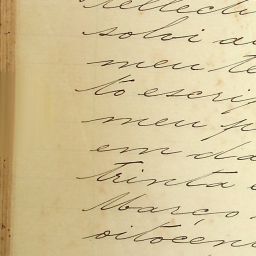 reflecti
solvi a
meu te
to escrip
meu p
em da
trinta e
Março
oitocen